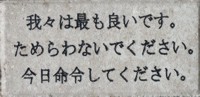 我々は最も良いです。
ためらわないでください。
今日命令してください。